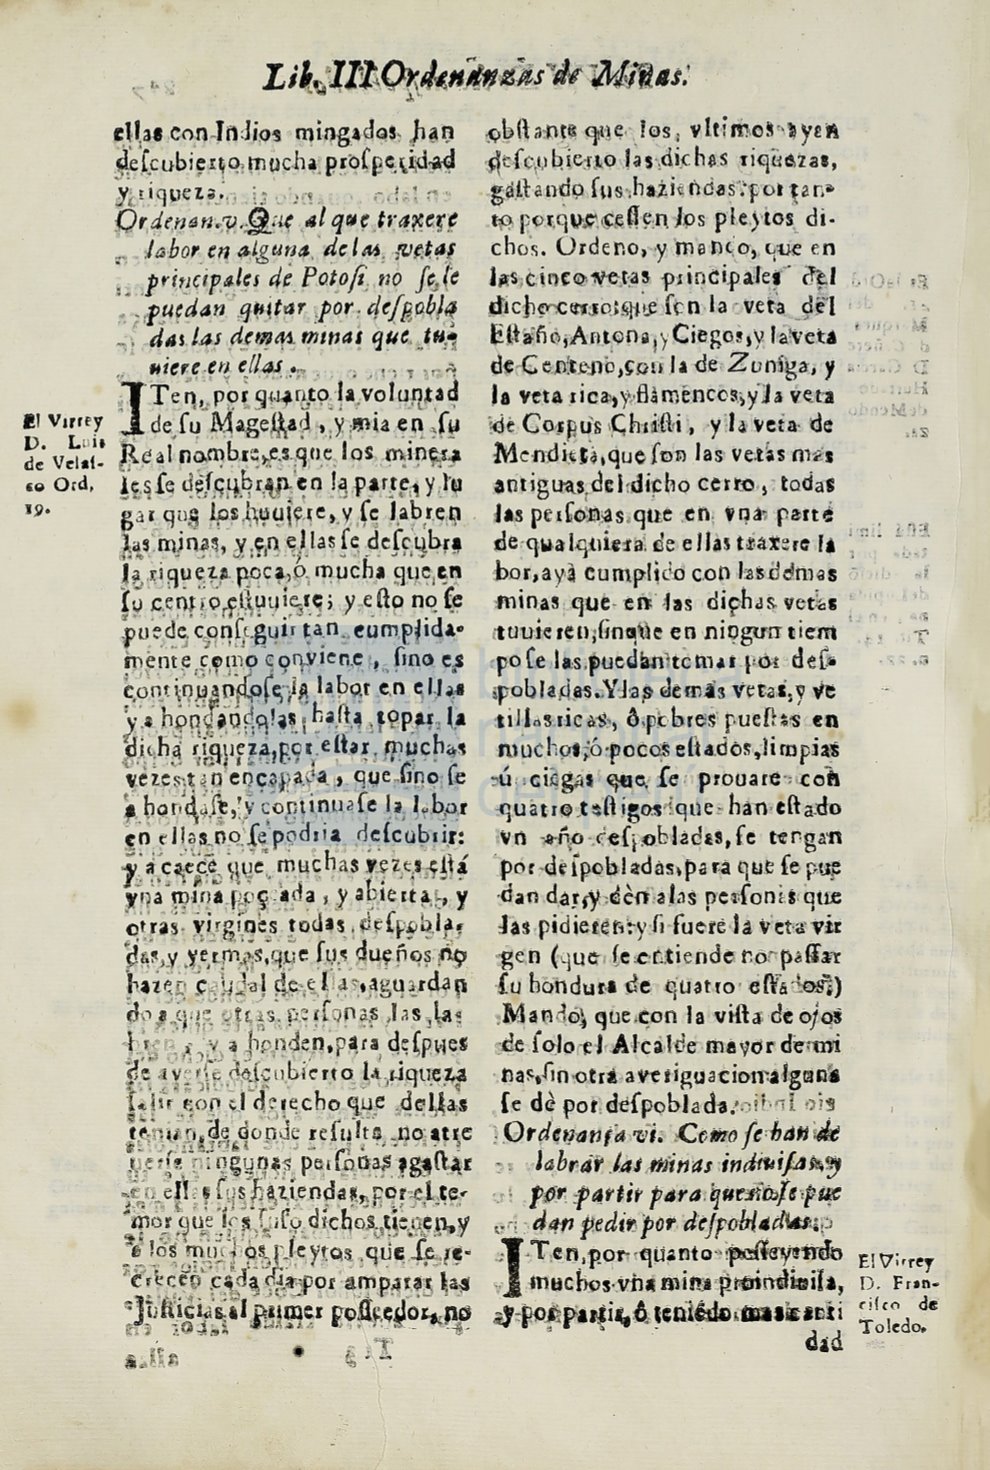 Lib. III Ordenanzas de Minas.
ellas con Indios mingados han
descubierto mucha prosperidad
y riqueza.
Ordenan. v. Que al que traxere
labor en alguna de las vetas
principales de Potosi no se le
puedan quitar por despobla
das las demas minas que tu-
niere en ellas.
El Virrey
D. Luis
de Velas-
co Ord,
19.
ITen, por quanto la voluntad
de su Magestad, y mia en su
Real nombre, es que los minera
les se descubran en la parte, y lu
gar que los huuiere, y se labren
las minas, y en ellas se descubra
la riqueza poca, ó mucha que en
su centro estuuiere; y esto no se
puede conseguir tan cumplida-
mente como conviene, sino es
continuandose la labor en ellas
y a hondandolas, hasta topar la
dicha riqueza, por estar muchas
vezes tan encapada, que sino se
a hondase, y continuase la labor
en ellas no se podria descubrir:
y á caece que muchas vezes está
vna mina poç ada, y abierta, y
otras virgines todas despobla-
das, y yermas, que sus dueños no
hazen caudal de ellas, aguardan
do a que otras personas las la-
bren, y a honden, para despues
de averse descubierto la riqueza
salir con el derecho que dellas
tenian, de donde resulta no atre
verse ningunas personas a gastar
en ellas sus haziendas, por el te-
mor que los suso dichos tienen, y
a los muchos pleytos que se re-
crecen cada dia por amparar las
Justicias al primer posseedor, no
obstante que los, vltimos ayan
descubierto las dichas riquezas,
gastando sus haziendas: por tan-
to porque cessen los pleytos di-
chos. Ordeno, y mando, que en
las cinco vetas principales del
dicho cerro: que son la veta del
Estaño, Antona, y Ciegos, y la veta
de Centeno, con la de Zuniga, y
la veta rica, y flamencos, y la veta
de Corpus Christi, y la veta de
Mendieta, que son las vetas mas
antiguas del dicho cerro, todas
las personas que en vna parte
de qualquiera de ellas traxere la
bor, aya cumplido con las demas
minas que en las dichas vetas
tuuieren, sin que en ningun tiem
po se las puedan tomar por des-
pobladas. Y las demas vetas, y ve
tillas ricas, ô pobres puestas en
muchos, ó pocos estados, limpias
ú ciegas que se prouare con
quatro testigos que han estado
vn año despobladas, se tengan
por despobladas, para que se pue
dan dar, y dèn a las personas que
las pidieren: y si fuere la veta vir
gen (que se entiende no passar
su hondura de quatro estados:)
Mando, que con la vista de ojos
de solo el Alcalde mayor de mi
nas, sin otra averiguacion alguna
se dè por despoblada.
Ordenança vi. Como se han de
labrar las minas indiuisas, y
por partir para que no se pue
dan pedir por despobladas.
El Virrey
D. Fran-
cisco de
Toledo.
ITen, por quanto posseyendo
muchos vna mina proindiuisa,
y por partir, ô teniédo mas canti
dad